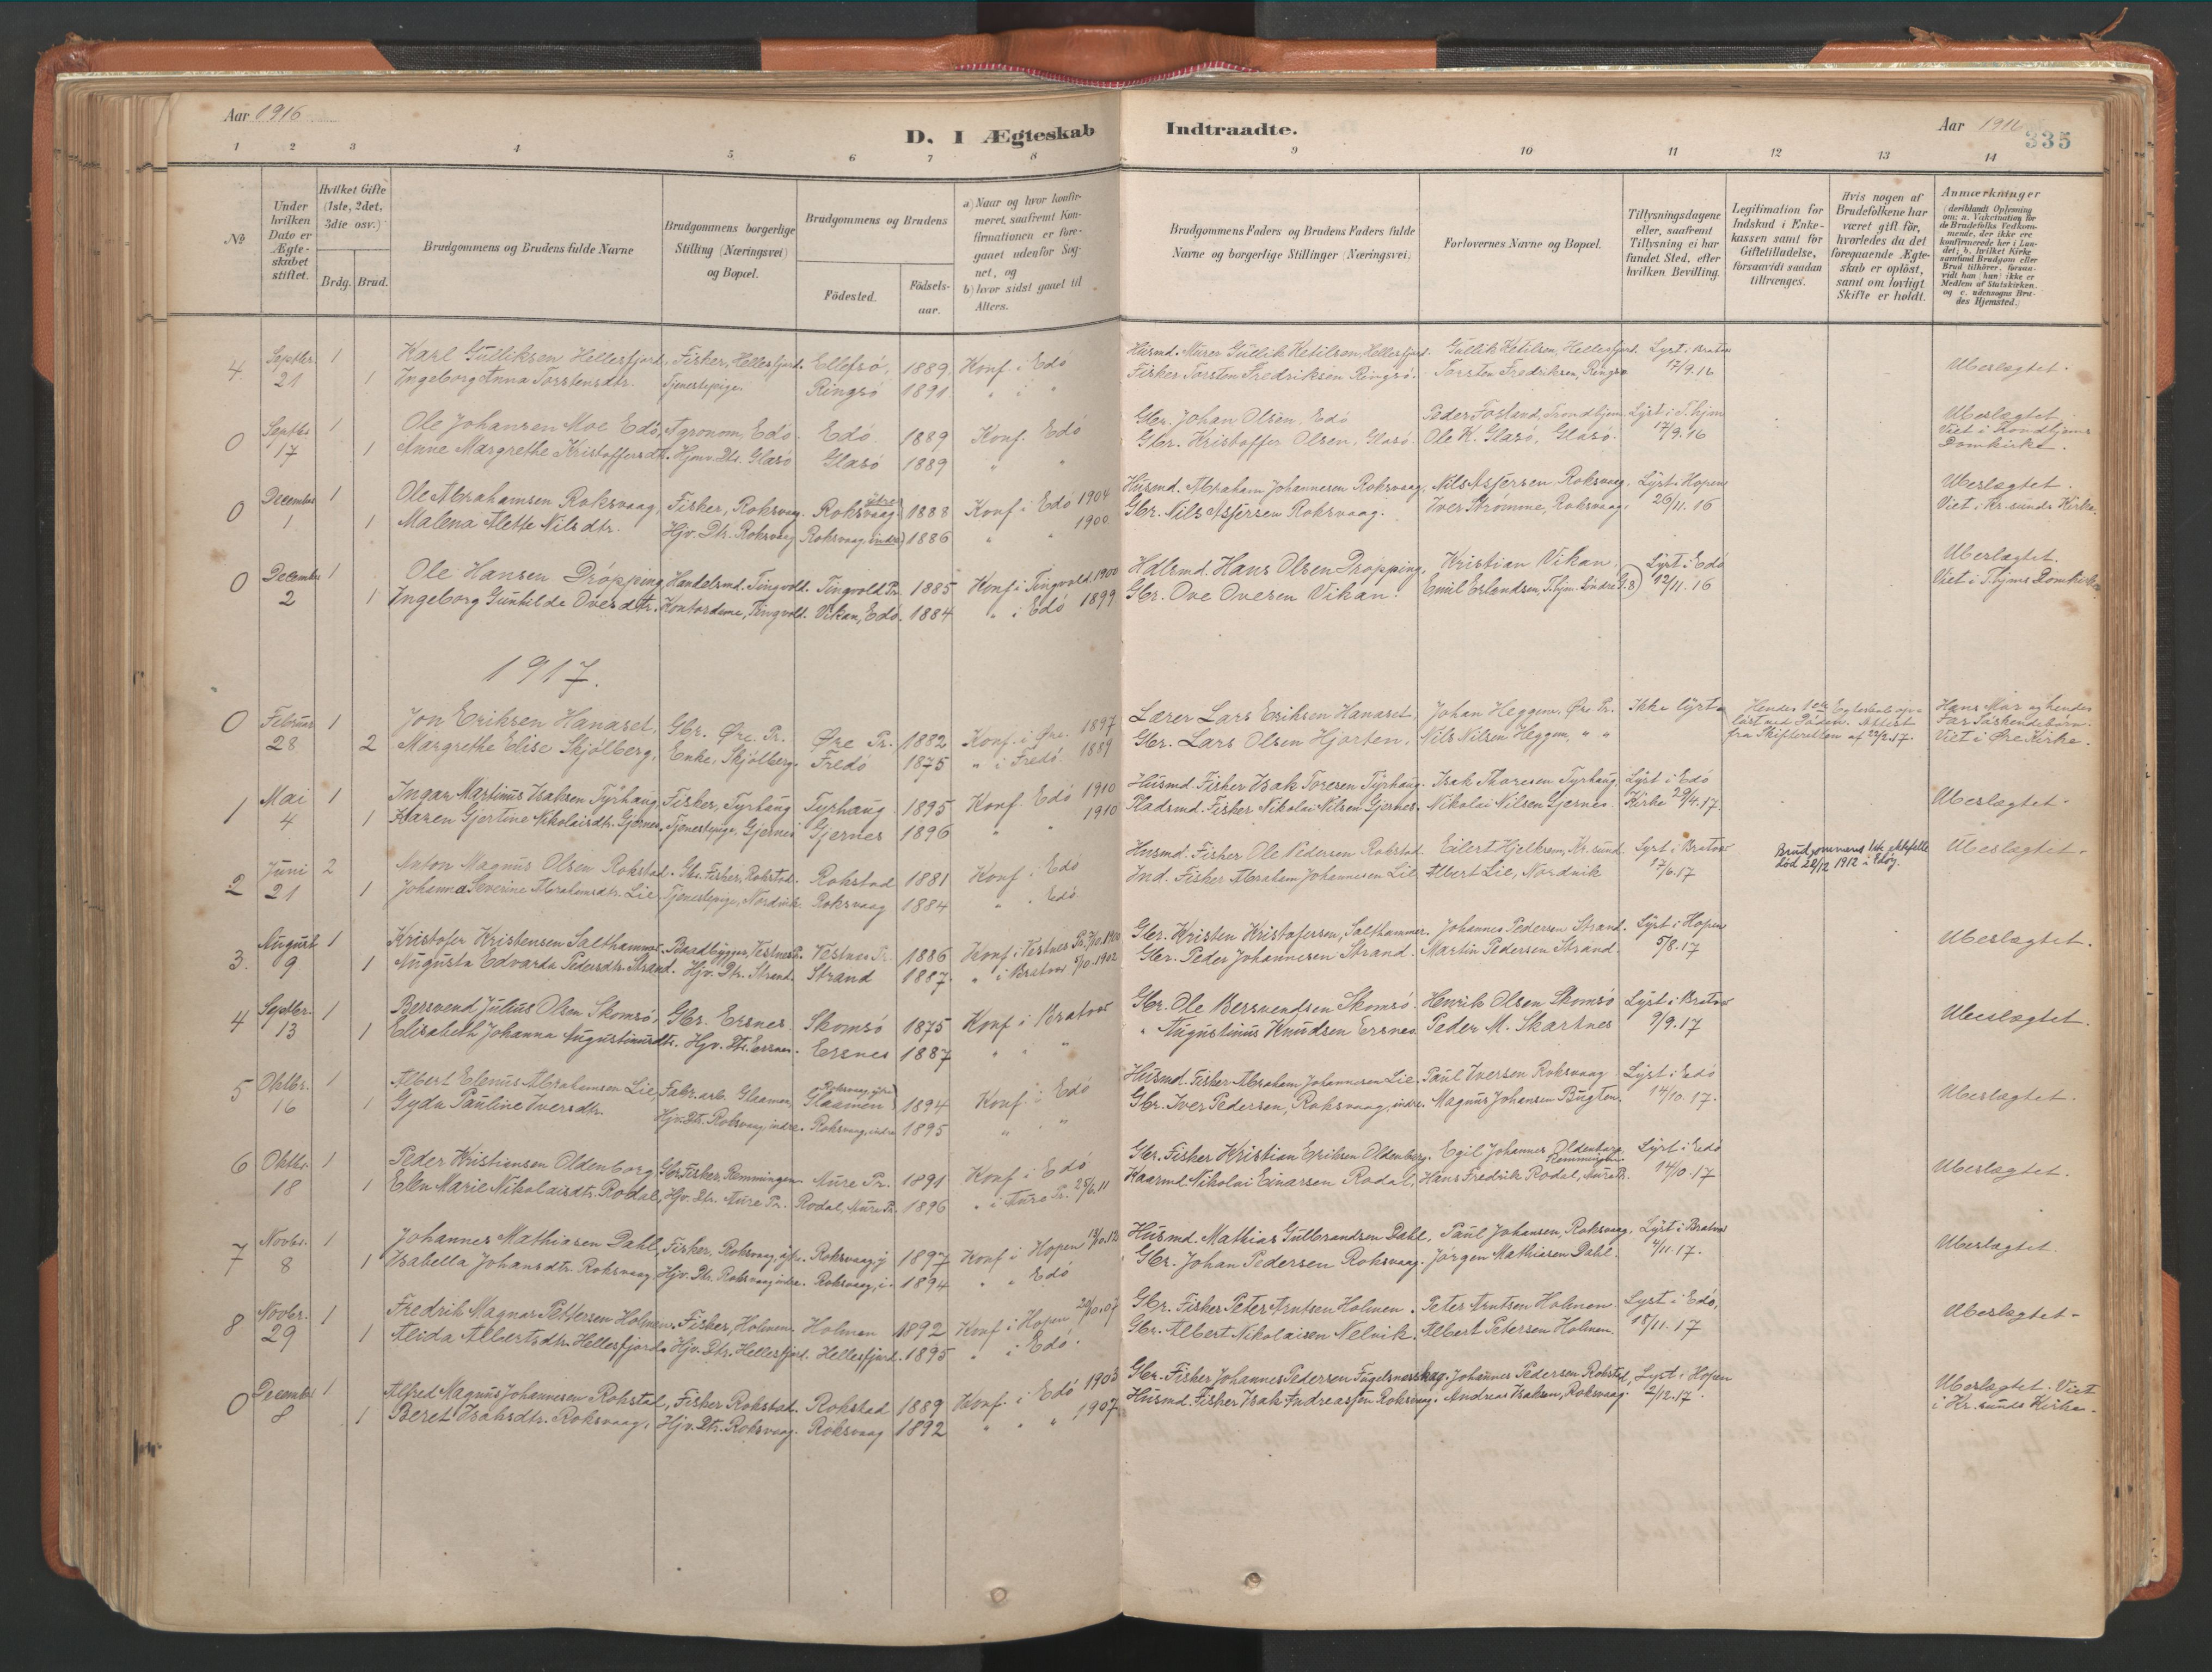 Aar 1916
D. I Ægteskab Indtraadte.
Aar 1916
335
1 2 3 4 5 6 7 8 9 10 11 12 13 14
No
Under hvilken Dato er Ægteskabet stiftet.
Hvilket Gifte (1ste, 2det, 3die osv.)
Brdg. Brud.
Brudgommens og Brudens fulde Navne
Brudgommens borgerlige Stilling (Næringsvei) og Bopæl.
Brudgommens og Brudens
Födested.
Födselsaar.
a) Naar og hvor konfirmeret, saafremt Konfirmationen er foregaaet udenfor Sognet, og
b) hvor sidst gaaet til Alters.
Brudgommens Faders og Brudens Faders fulde Navne og borgerlige Stillinger (Næringsvei)
Forlovernes Navne og Bopæl.
Tillysningsdagene eller, saafremt Tillysning ei har fundet Sted, efter hvilken Bevilling.
Legitimation for Indskud i Enkekassen samt for Giftetilladelse, forsaavidt saadan tiltrænges.
Hvis nogen af Brudefolkene har været gift för, hvorledes da det foregaaende Ægteskab er oplöst, samt om lovligt Skifte er holdt.
Anmærkninger
(deriblandt Oplysning om: a. Vakcination for de Brudefolks Vedkommende, der ikke ere konfirmerede her i Landet; b. hvilket Kirkesamfund Brudgom eller Brud tilhörer, forsaavidt han (hun) ikke er Medlem af Statskirken, og c. udensogns Brudes Hjemsted.)
4. Septbr. 21 1 Karl Gulliksen Hellesfjord, Fisker, Hellesfjord. Ellefsö, 1889 Konf. i Edö Husmd. Murer Gullik Ketilsen, Hellesfjord. Gullik Ketilsen, Hellesfjord. Lyst i Bratvær 17/9.16 Ubeslægtet.
1 Ingeborg Anna Torstensdtr. Tjenestepige. Ringsö 1891 " " " Fisker Torsten Fredriksen Ringsö. Torsten Fredriksen, Ringsö
0 Septbr 17 1 Ole Johansen Moe Edö, Agronom, Edö. Edö 1889 Konf. Edö Gbr. Johan Olsen, Edö Peder Fosland, Trondhjem Lyst i T.hjem 17/9.16 Ubeslægtet. Viet i Trondhjems Domkirke.
1 Anne Margrethe Kristoffersdtr. Hjmv. Dtr. Glasö Glasö 1889 " " Gbr. Kristoffer Olsen, Glasö. Ole K. Glasö, Glasö.
0 December 1 1 Ole Abrahamsen Roksvaag, Fisker, Roksvaag. Roksvaag ydre 1888 Konf. i Edö 1904 Husmd. Abraham Johannesen Roksvaag, Nils Asjersen Roksvaag, Lyst i Hopen 26/11.16 Ubeslægtet. Viet i Kr.sunds Kirke.
1 Malena Alette Nilsdtr. Hjv. Dtr. Roksvaag Roksvaag indre 1886 " " 1900 Gbr. Nils Asjersen Roksvaag. Iver Strømme, Roksvaag.
0 December 2 1 Ole Hansen Dröpping, Handelsmd. Tingvold. Tingvold Pr. 1885 Konf. i Tingvold 1900 Hdlsmd. Hans Olsen Dröpping, Kristian Vikan, Lyst i Edö 12/11.16 Ubeslægtet. Viet i T.hjms Domkirke
1 Ingeborg Gunhilde Ovesdtr. Kontordame, Tingvold. Vikan, Edö. 1884 " i Edö 1899 Gbr. Ove Ovesen Vikan. Emil Erlendsen, T.hjem
1917.
0 Februar 28 1 Jon Eriksen Hanaset, Gbr. Øre Pr. Øre Pr. 1882 Konf. i Øre 1897 Lærer Lars Eriksen Hanaset, Johan Heggem, Øre Pr. Ikke lyst Hendes 1ste Egteskab oplöst ved Döden. Attest fra Skifteretten af 22/2.17. Hans Mor og hendes Far Söskendebörn. Viet i Øre Kirke.
2 Margrethe Elise Skjölberg, Enke, Skjölberg. Fredö 1875 " i Fredö 1889 Gbr. Lars Olsen Hjorten, Nils Nilsen Heggem, " "
1 Mai 4 1 Ingar Martinus Isaksen Tyrhaug Fisker, Tyrhaug Tyrhaug 1895 Konf. Edö 1910 Husmd. Fisker Isak Toresen Tyrhaug. Isak Thoresen Tyrhaug. Lyst i Edö Kirke 29/4.17. Ubeslægtet.
1 Karen Gjertine Nikolaisdtr. Gjernes. Tjenestepige, Gjernes Gjernes 1896 " " 1910 Pladsmd. Fisker Nikolai Nilsen Gjernes. Nikolai Nilsen Gjernes.
2 Juni 21 2 Anton Magnus Olsen Rokstad. Gbr. Fisker, Rokstad. Rokstad 1881 Konf. i Edö Husmd. Fisker Ole Pedersen Rokstad Eilert Hjelkrem, Kr.sund. Lyst i Bratvær 17/6.17 Brudgommens 1ste ektefelle död 28/12 1912 i Edöy. Ubeslægtet.
1 Johanna Severine Abrahamsdtr. Lie. Tjenestepige, Nordvik. Roksvaag 1884 " " Edö Ind. Fisker Abraham Johannesen Lie Albert Lie, Nordvik
3. August 9 1 Kristofer Kristensen Salthammer. Baadbygger, Vestnes Pr. Vestnes Pr. 1886 Konf. i Vestnes Pr. Gbr. Kristen Kristofersen, Salthammer. Johannes Pedersen Strand. Lyst i Hopen 5/8.17 Ubeslægtet.
1 Augusta Edvarda Pedersdtr. Strand. Hjv. Dtr. Strand Strand 1887 " i Bratvær 5/10.1902 Gbr. Peder Johannesen Strand. Martin Pedersen Strand.
4 Septbr. 13 1 Bersvend Julius Olsen Skomsö, Gbr. Ersnes Skomsö 1875 Konf. i Bratvær Gbr. Ole Bersvendsen Skomsö. Henrik Olsen Skomsö Lyst i Bratvær 9/9.17 Ubeslægtet.
1 Elisabeth Johanna Augustinusdtr. Hjv. Dtr. Ersnes. Ersnes 1887 " " " " Augustinus Knudsen Ersnes Peder M. Skarsnes
5 Oktbr. 16 1 Albert Elenus Abrahamsen Lie, Fabr.arb. Glaamen, Roksvaag ydre Glaamen 1894 Konf. i Edö Husmd. Fisker Abraham Johannesen Lie. Paul Iversen Roksvaag Lyst i Edö 14/10.17. Ubeslægtet.
1 Gyda Pauline Iversdtr. Hjv. Dtr. Roksvaag, indre. Roksvaag, indre 1895 " " " Gbr. Iver Pedersen, Roksvaag, indre. Magnus Johansen Bugten.
6 Oktbr. 18 1 Peder Kristiansen Oldenborg Gbr. Fisker, Remmingen. Aure Pr. 1891 Konf. i Edö Gbr. Fisker Kristian Eriksen Oldenborg. Egil Johannes Oldenborg Remmingen Lyst i Edö 14/10.17 Ubeslægtet.
1 Elen Marie Nikolaisdtr. Rodal, Hjv. Dtr. Aure Pr. Rodal, Aure Pr. 1896 " i Aure Pr. 25/6.11 Kaarmd. Nikolai Einarsen Rodal, Hans Fredrik Rodal, Aure Pr.
7 Novbr. 8 1 Johannes Mathiasen Dahl, Fisker, Roksvaag, ytre. Roksvaag, y 1897 Konf. i Hopen 13/10.12 Husmd. Mathias Gulbrandsen Dahl, Paul Johansen, Roksvaag, Lyst i Bratvær 4/11.17. Ubeslægtet.
1 Isabella Johansdtr. Roksvaag. Hjv. Dtr. Roksvaag indre. Roksvaag, i. 1894 " " Edö Gbr. Johan Pedersen Roksvaag. Jørgen Mathiasen Dahl.
8 Novbr. 29 1 Fredrik Magnar Pettersen Holmen, Fisker, Holmen Holmen 1892 Konf. i Hopen 20/10.07 Gbr. Fisker Peter Arntsen Holmen. Peter Arntsen Holmen. Lyst i Edö, 18/11.17 Ubeslægtet.
1 Alida Albertsdtr. Hellesfjord. Hjv. Dtr. Hellesfjord. Hellesfjord. 1895 " i Edö. Gbr. Albert Nikolaisen Nelvik. Albert Petersen Holmen.
0 December 8 1 Alfred Magnus Johannesen Rokstad, Fisker Rokstad. Rokstad 1889 Konf. i Edö 1903 Gbr. Fisker Johannes Pedersen Fugelsnesskag. Johannes Pedersen Rokstad, Lyst i Hopen 2/12.17. Ubeslægtet. Viet i Kr.sunds Kirke.
1 Beret Isaksdtr. Roksvaag, Hjv. Dtr. Roksvaag. Roksvaag 1892 " " " 1907 Husmd. Fisker Isak Andreassen Roksvaag. Andreas Isaksen, Roksvaag.